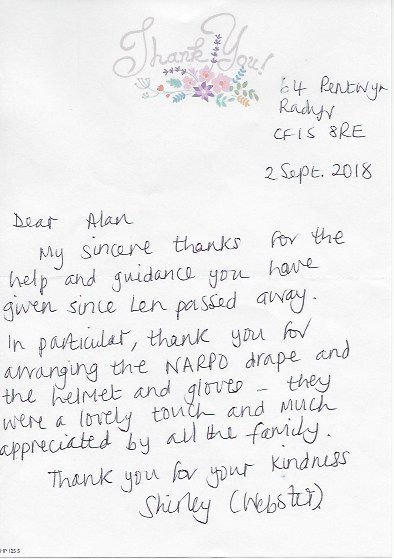 Thank You!
64 Pentwyn
Radyr
CF15 8RE
2 Sept. 2018
Dear Alan
My sincere thanks for the
help and guidance you have
given since Len passed away.
In particular, thank you for
arranging the NARPO drape and
the helmet and gloves - they
were a lovely touch and much
appreciated by all the family.
Thank you for your kindness
Shirley (Webster)
HP 125 S